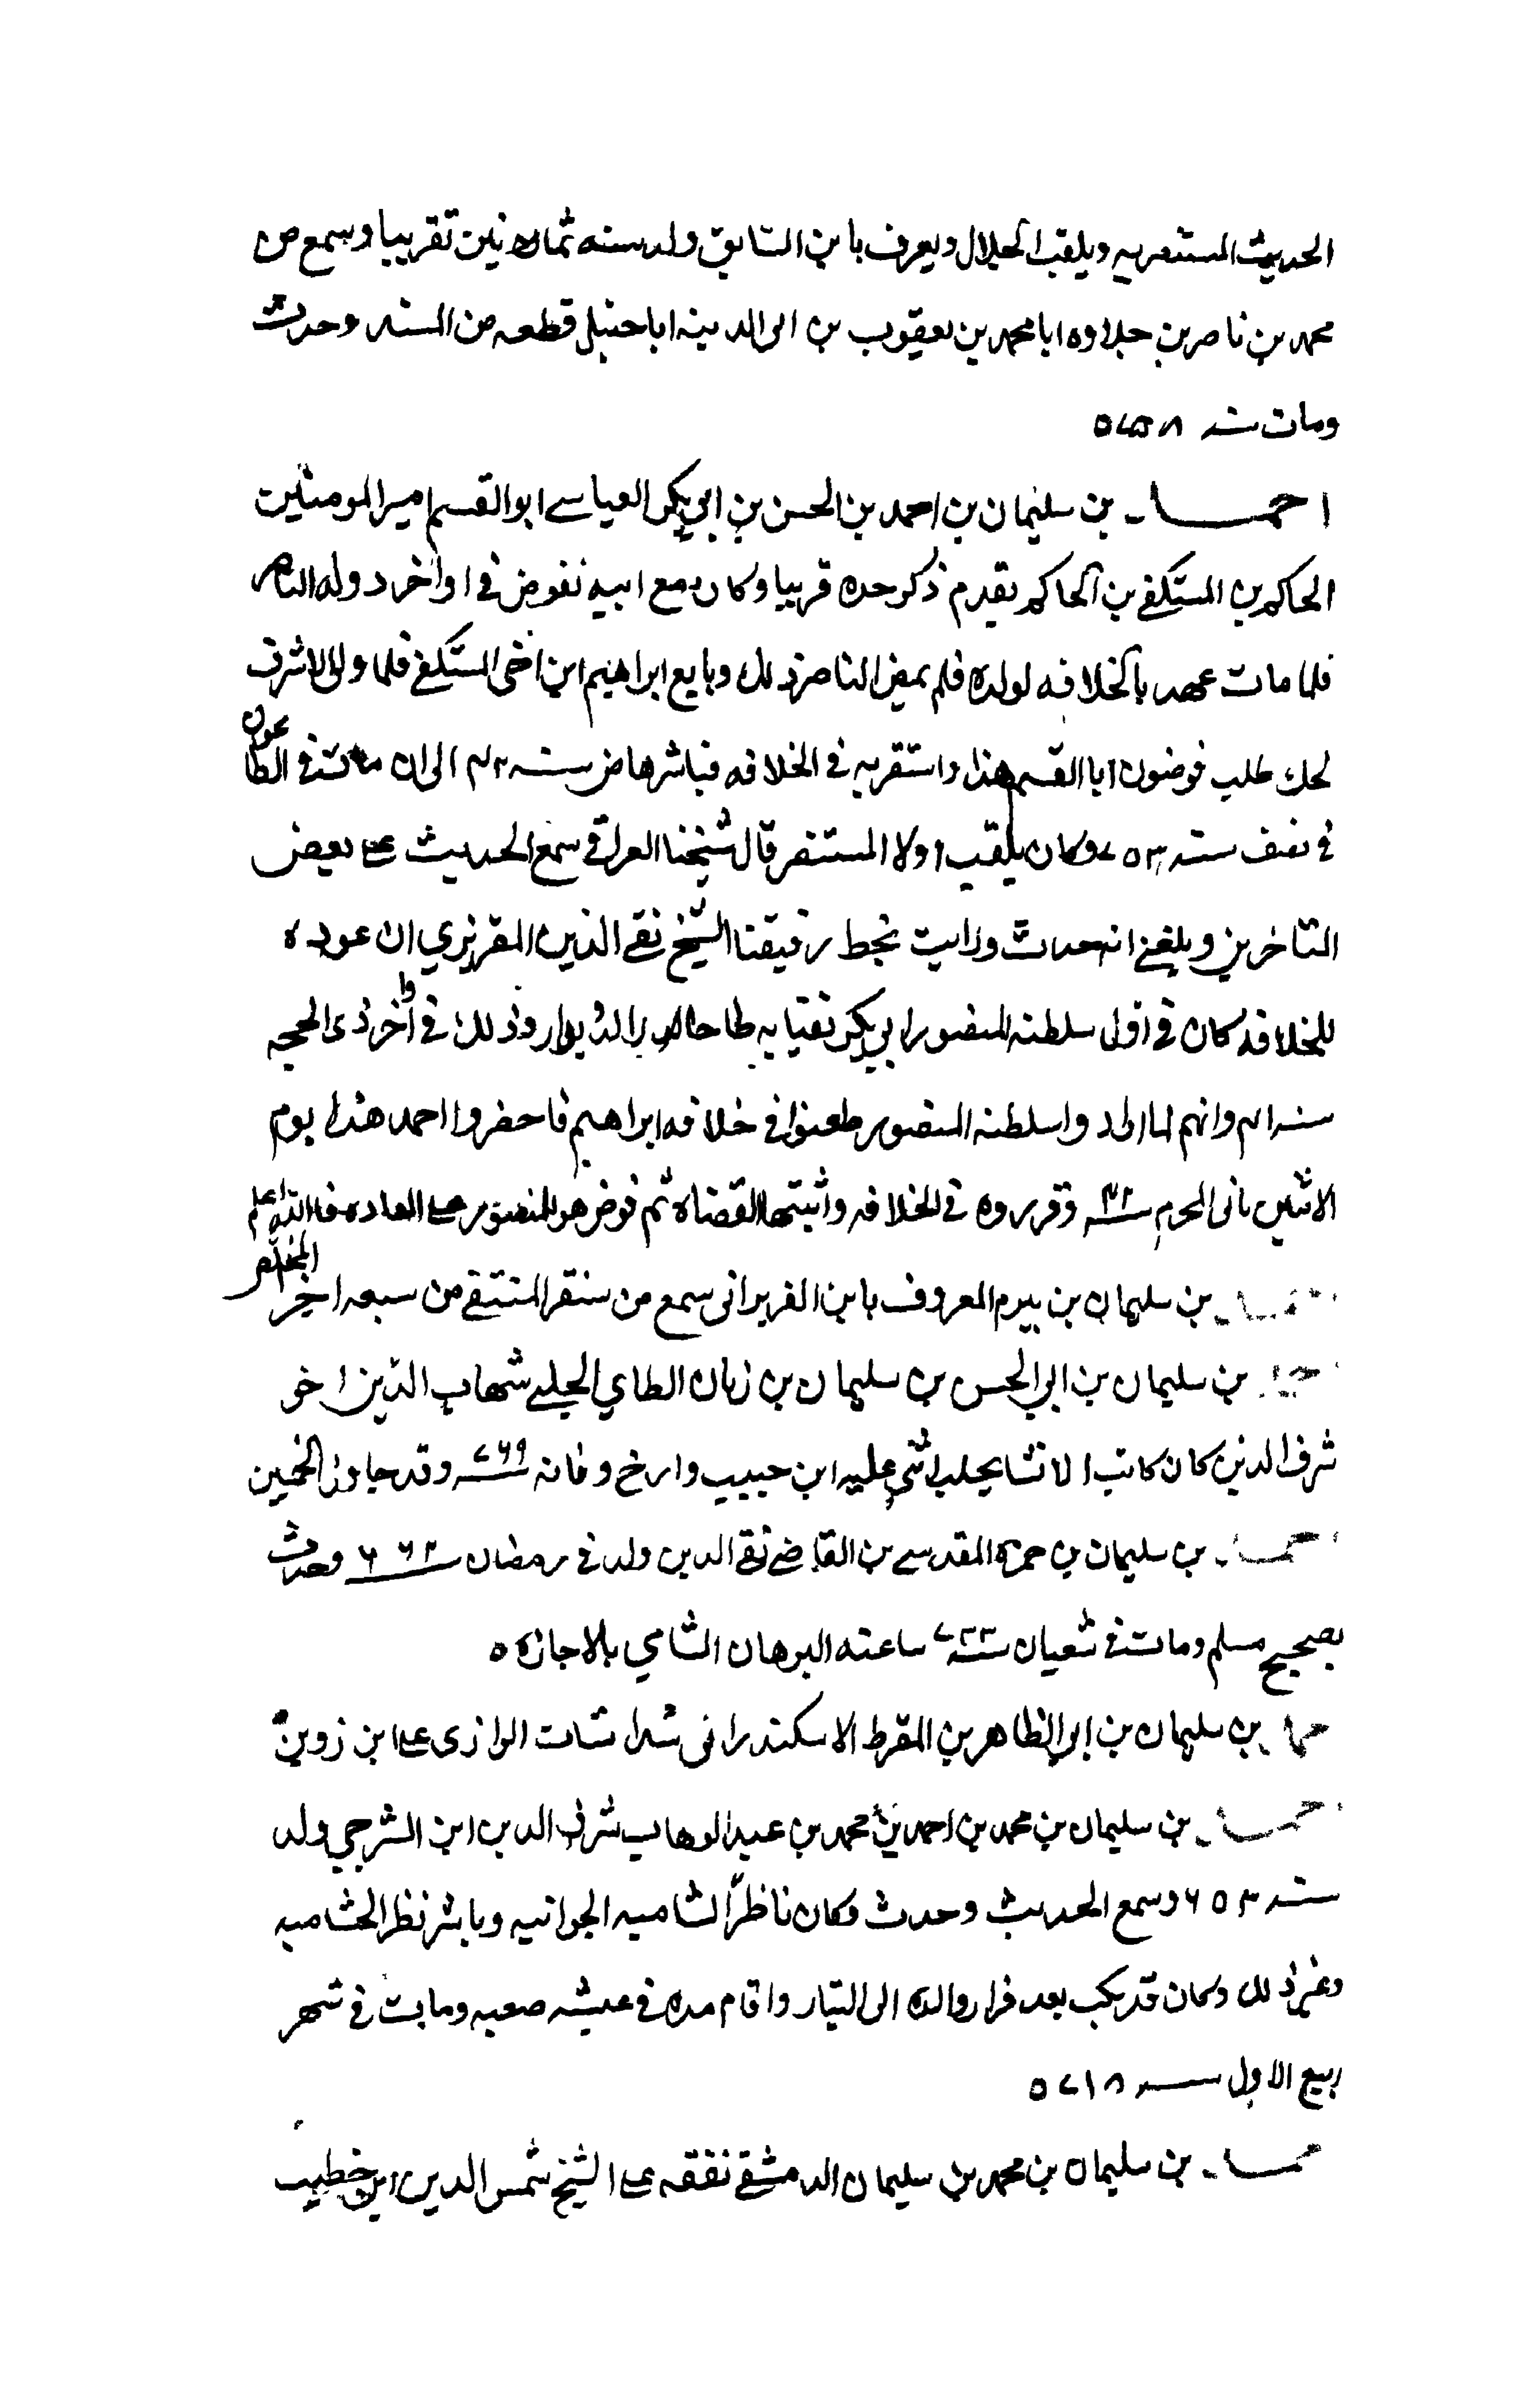 الحديث المستنصريه ويلقب الجلال ويعرف بابن السابق ولد سنه ثمانين تقريبا وسمع من
محمد بن ناصر بن حلاوه ابا محمد بن يعقوب بن ابى الدينه اباحنبلى قطعه من المسند وحدث
ومات سنه
احمد بن سليمان بن احمد بن الحسن بن ابي بكر العباسى ابو القسم امير المومنين
الحاكم بن المستكفى بن الحاكم تقدم ذكر جده قريبا وكان مع ابيه نفوض فى اواخر دوله الناصر
فلما مات عهد بالخلافه لولده فلم يمض الناصر ذلك وبايع ابراهيم ابن اخى المستكفى فلما ولى الاشرف
كجك طلب قوصون ابا القسم هذا واستقر به فى الخلافه فباشرها من سنه الى ان مات فى الطاعون
فى نصف سنه ٧٥٣ وكان يلقب اولا المستنصر قال شيخنا العراقى سمع الحديث على بعض
المتاخرين وبلغنى انه حدث ورايت بخط رفيقنا الشيخ تقى الدين المقريزي ان عوده
للخلافه كان فى اول سلطنه المنصور ابى بكر وذلك فى اواخر ذى الحجه
سنه وانهم لما ارادوا سلطنه المنصور طعنوا فى خلافه ابراهيم فاحضروا احمد هذا يوم
الاثنين ثانى المحرم سنه وقرروه فى الخلافه واثبتها القضاه ثم فوض هو للمنصور على العاده فالله اعلم
احمد بن سليمان بن بيرم المعروف بابن سمع من سنقر المنتقى من سبعه اجزا المخلص
احمد بن سليمان بن ابى الحسن بن سليمان بن زيان الطاي الحلبى شهاب الدين اخو
شرف الدين كان كاتب الانشا بحلب اثنى عليه ابن حبيب وارخ وفاته سنه ٧٦٩ وقد جاوز الخمسين
احمد بن سليمان بن حمزه المقدسى بن القاضى تقى الدين ولد فى رمضان سنه ٦٦٢ وحدث
بصحيح مسلم ومات فى شعبان سنه ٧٣٣ ساعته البرهان الشامي بالاجازه ٥
احمد بن سليمان بن ابى الطاهر بن المقرط الاسكندرانى الرازى على ابن زوين
احمد بن سليمان بن محمد بن احمد بن محمد بن عبد الوهاب شرف الدين ابن الشرجي ولد
سنه ٦٥٣ وسمع الحديث وحدث وكان ناظر الشاميه الجوانيه وباشر نظر الحشاميه
وغير ذلك وكان قد نكب بعد فرار والده الى التتار واقام مده فى عيشه صعبه ومات فى شهر
ربيع الاول سنه ٧١٨ ٥
احمد بن سليمان بن محمد بن سليمان الدمشقى تفقه على الشيخ شمس الدين ابن خطيب